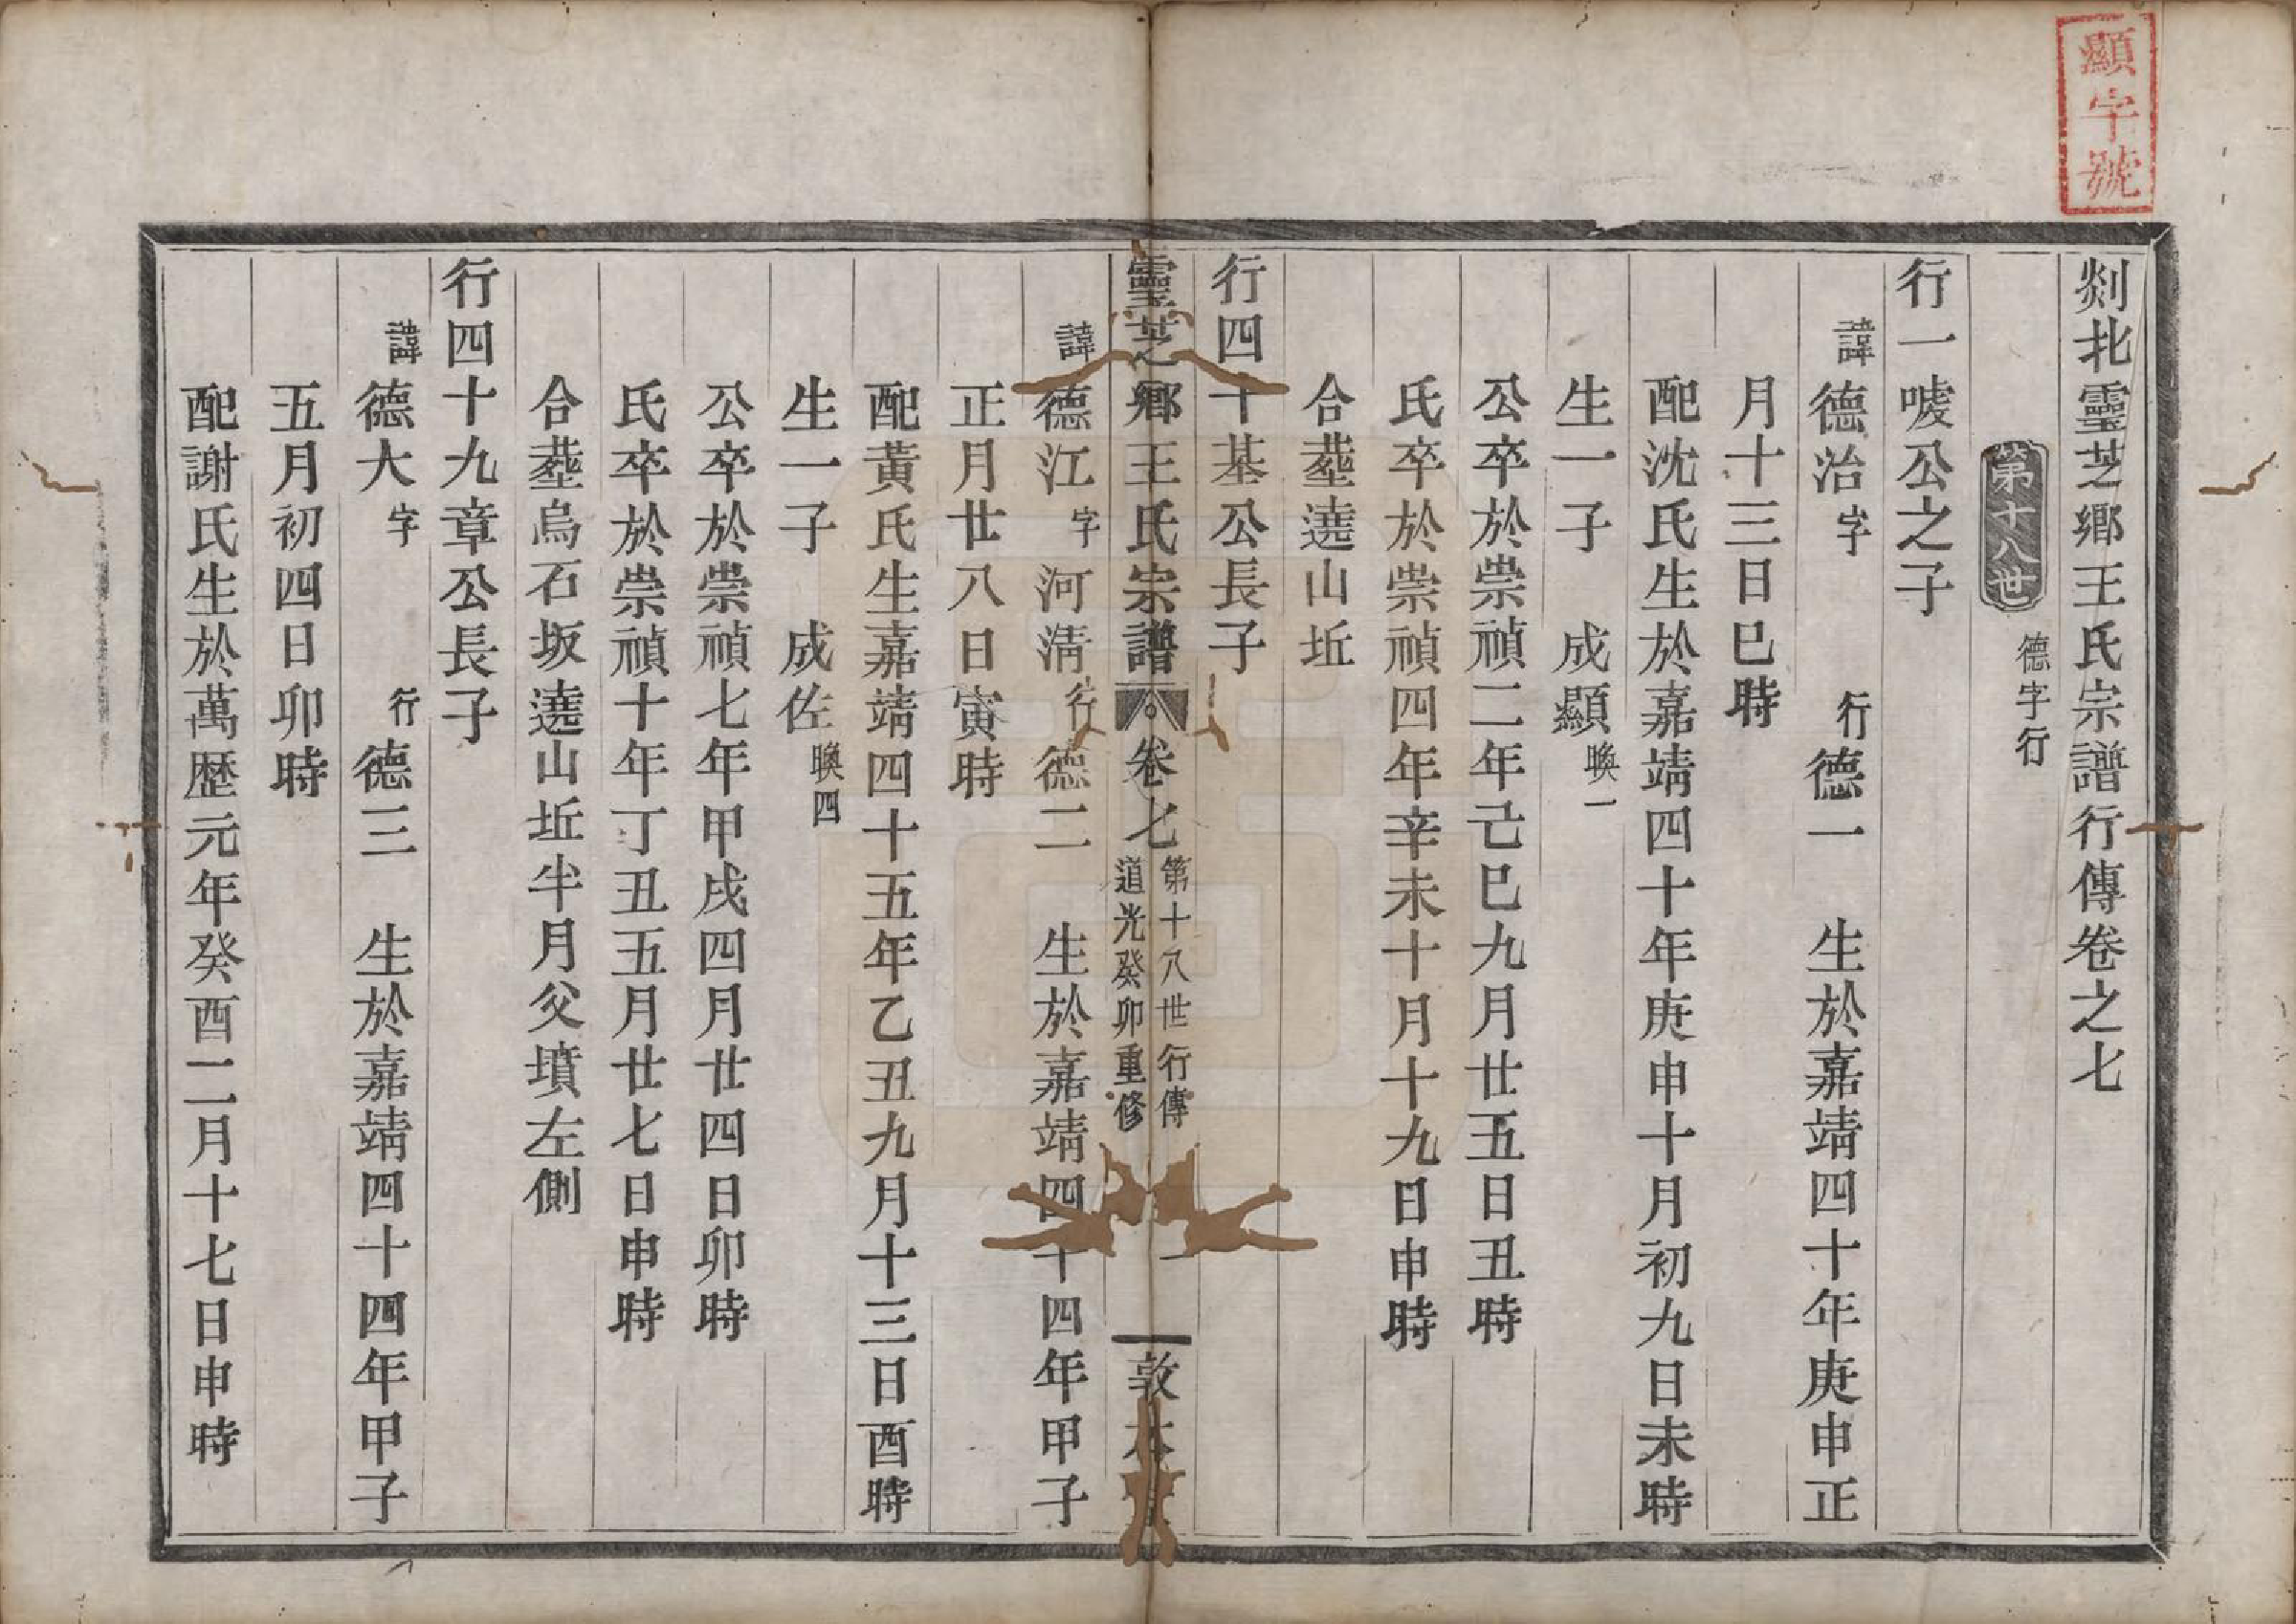 顯字號
剡北靈芝鄉王氏宗譜行傳卷之七
第十八世 德字行
行一唛公之子
諱德冶字 行德一 生於嘉靖四十年庚申正
月十三日巳時
配沈氏生於嘉靖四十年庚申十月初九日未時
生一子 成顯 㬇一
公卒於崇禎二年己巳九月廿五日丑時
氏卒於崇禎四年辛未十月十九日申時
合塟遶山坵
行四十基公長子
靈芝鄉王氏宗譜 卷七 第十八世行傳 道光癸卯重修 一 敦本
諱德江字河淸行德二 生於嘉靖四十四年甲子
正月廿八日寅時
配黃氏生嘉靖四十五年乙丑九月十三日酉時
生一子 成佐 㬇四
公卒於崇禎七年甲戌四月廿四日卯時
氏卒於崇禎十年丁丑五月廿七日申時
合塟烏石坂遶山坵半月父墳左側
行四十九章公長子
諱德大字 行德三 生於嘉靖四十四年甲子
五月初四日卯時
配謝氏生於萬歷元年癸酉二月十七日申時